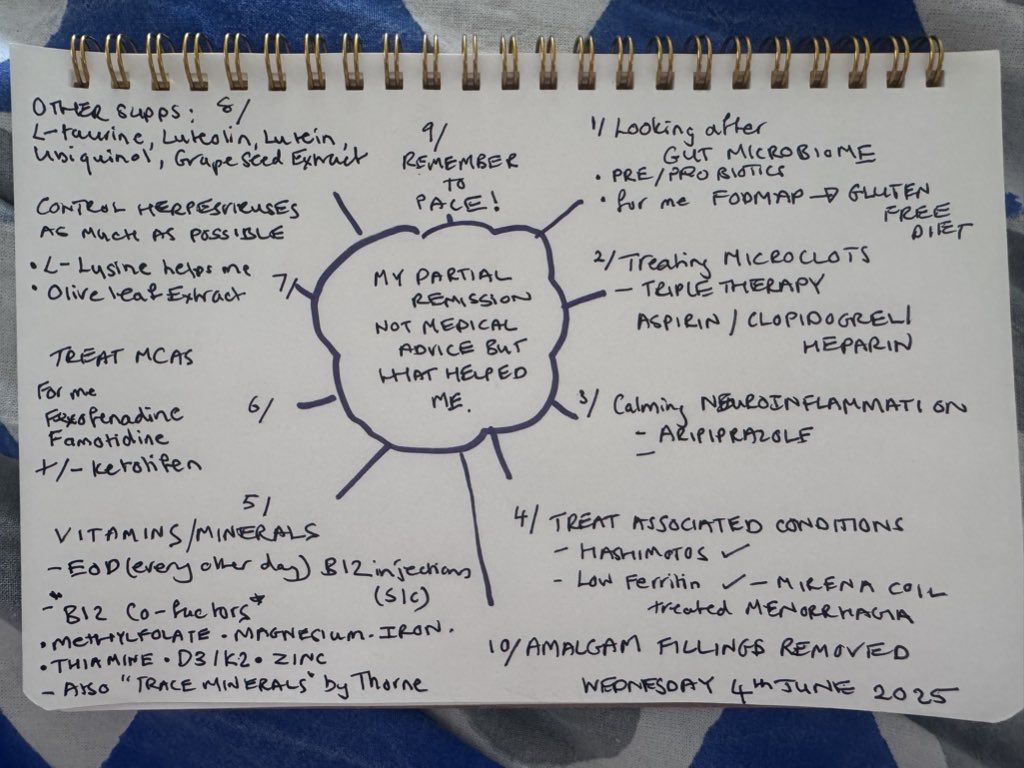 MY PARTIAL
REMISSION
NOT MEDICAL
ADVICE BUT
WHAT HELPED
ME.
1/ Looking after
GUT MICROBIOME
• PRE/PROBIOTICS
• for me FODMAP → GLUTEN
FREE
DIET
2/ Treating MICROCLOTS
- TRIPLE THERAPY
ASPIRIN / CLOPIDOGREL/
HEPARIN
3/ Calming NEUROINFLAMMATION
- ARIPIPRAZOLE
-
4/ TREAT ASSOCIATED CONDITIONS
- HASHIMOTOS ✓
- Low Ferritin ✓ - MIRENA COIL
treated MENORRHAGIA
5/
VITAMINS/MINERALS
- EOD (every other day) B12 injections
(S/C)
- *B12 Co-factors*
• METHYLFOLATE • MAGNESIUM • IRON.
• THIAMINE • D3/K2 • ZINC
- Also "TRACE MINERALS" by Thorne
6/
TREAT MCAS
For me
Fexofenadine
Famotidine
+/- Ketotifen
7/
CONTROL HERPESVIRUSES
AS MUCH AS POSSIBLE
• L-Lysine helps me
• Olive leaf Extract
OTHER SUPPS: 8/
L-taurine, Luteolin, Lutein,
Ubiquinol, Grapeseed Extract
9/
REMEMBER
TO
PACE!
10/ AMALGAM FILLINGS REMOVED
WEDNESDAY 4th JUNE 2025